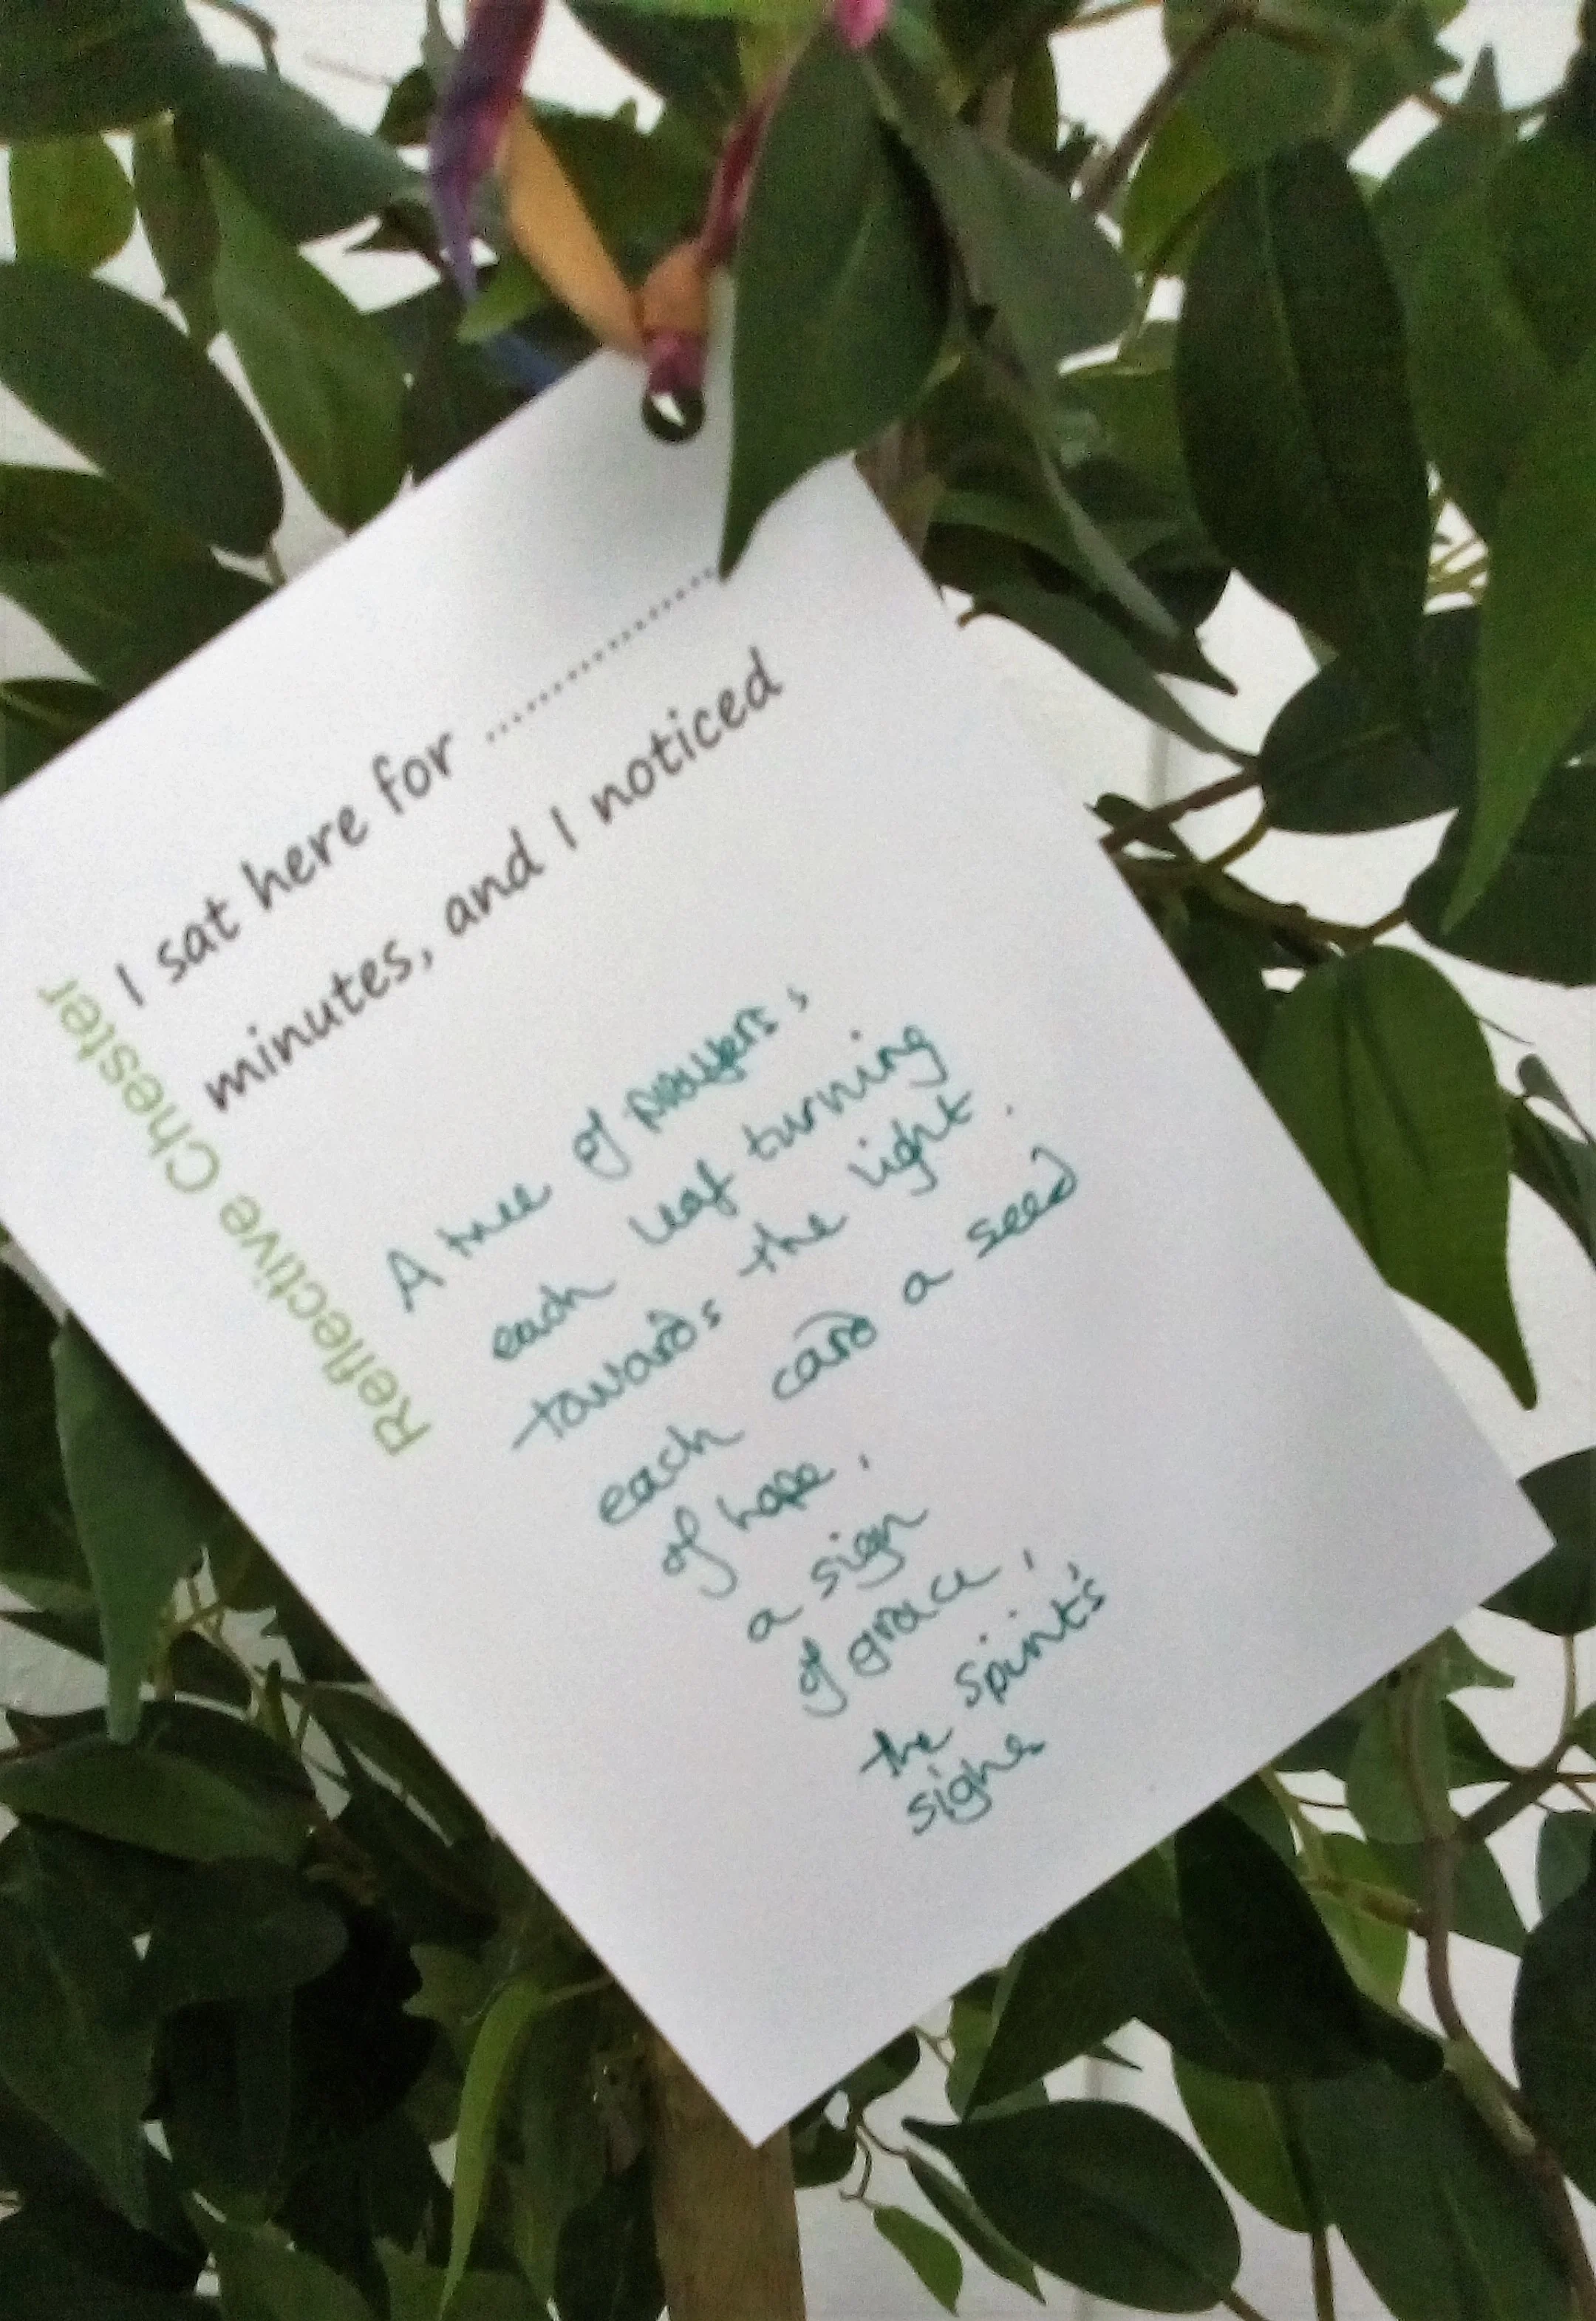 I sat here for ....................
minutes, and I noticed
Reflective Chester
A tree of prayers,
each leaf turning
towards the light.
each card a seed
of hope,
a sign
of grace,
the spirit's
sighs